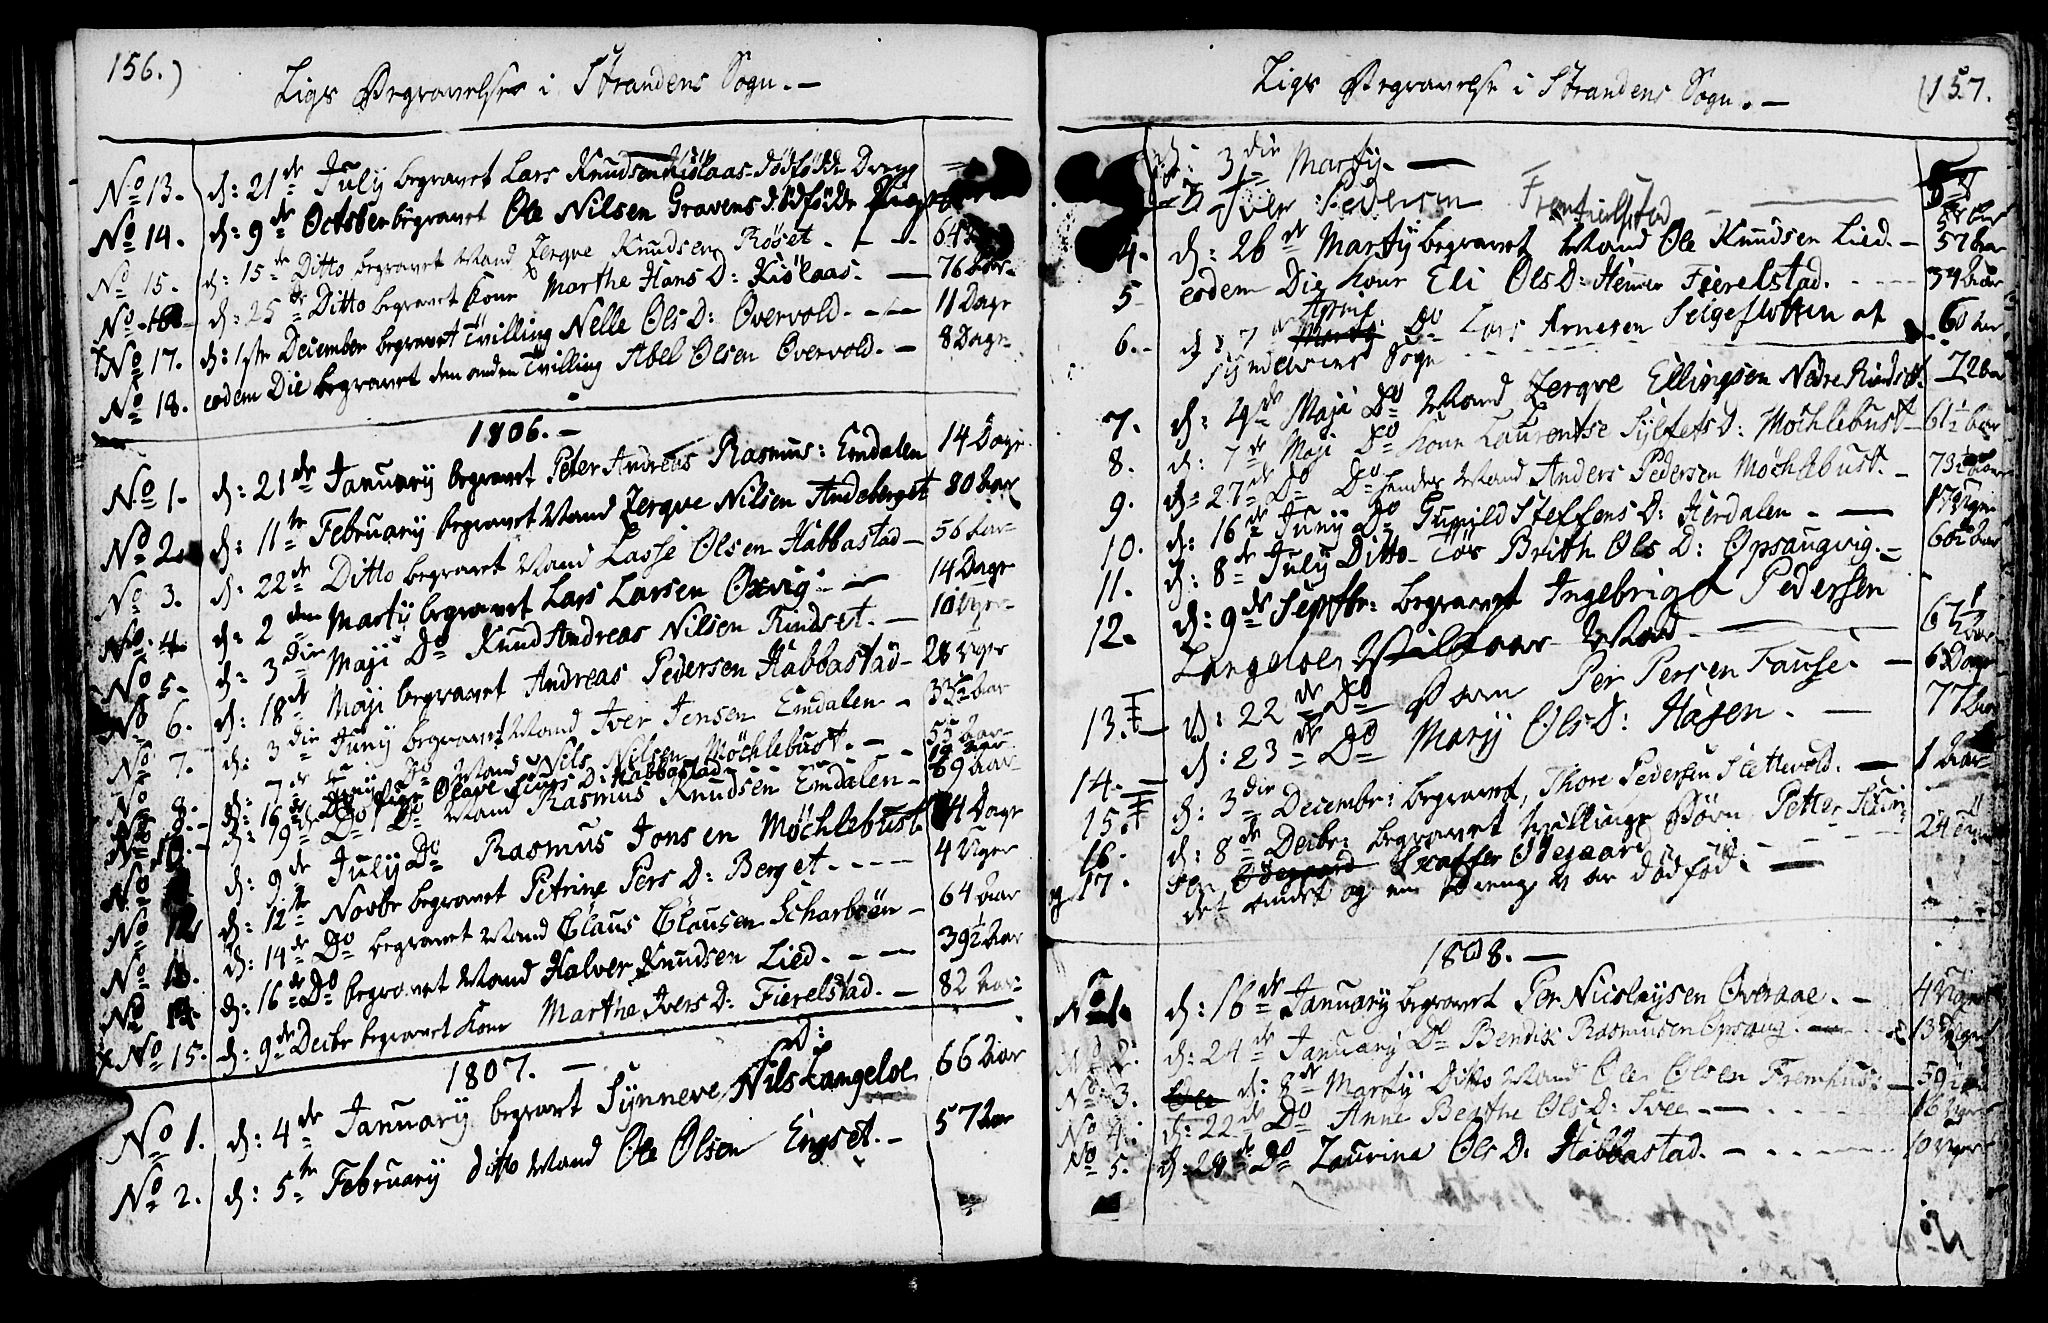 156.)
Ligs Begravelse i Strandens Sogn. —
No 13. d: 21de July begravet Lars Knudsen Kiölaas dödfödde Dreng
No 14. d: 9de October begravet Ole Nilsen Gravens dödfödde
No 15. d: 15de Ditto begravet Mand Zergve Knudsen Röset. - - - 64
No 16. d: 25de Ditto begravet Kone Marthe Hans D: Kiölaas. — 76 Aar
No 17. d: 1ste December begravet Tvilling Nelle Ols D: Overvold. - — 11 Dage
No 18. eodem Die begravet den anden Tvilling Abel Olsen Overvold. — 8 Dage
1806. —
No 1. d: 21de January begravet Peter Andreas Rasmus: Emdalen 14 Dage
No 2. d: 11te February begravet Mand Zergve Nilsen Andeberget 80 Aar
No 3. d: 22de Ditto begravet Mand Lasse Olsen Habbastad — 56 Aar
No 4. d: 2den Martij begravet Lars Larsen Oxvig. — 14 Dage
No 5. d: 3die Maji Do Knud Andreas Nilsen Rindset. — 10 Uger
No 6. d: 18de Maji begravet Andreas Pedersen Habbastad — 28 Uger
No 7. d: 3die Junij begravet Mand Iver Jensen Emdalen — 33½ Aar
No 8. d: 7de Junij Do Mand Nils Nilsen Möchlebust. — 55 Aar
d: 16de Do Pige Olave Siurs D: Habbastad
No 10. d: 19de Do Do Mand Rasmus Knudsen Emdalen — 69 Aar
No d: 9de July Do Rasmus Jonsen Möchlebust 14 Dage
No 12 d: 12te Novbr begravet Petrine Pers D: Berget. - - - 4 Uger
No 13. d: 14de Do begravet Mand Claus Clausen Scharböen — 64 Aar
No 14. d: 16de Do begravet Mand Halver Knudsen Lied. - — 39½ Aar
No 15. d: 9de Decbr begravet Kone Marthe Ivers D: Fierelstad. — 82 Aar
1807. —
No 1. d: 4de January begravet Synneve Nils D: Langeloe 66 Aar
No 2. d: 5te February ditto Mand Ole Olsen Engset. — 57 Aar
Ligs Begravelse i Strandens Sogn. —
(157.
d: 3die Martij. —
3 Iver Pedersen
4. d: 26de Martij begravet Mand Ole Knudsen Lied. — 57 Aar
5 eodem Die Kone Eli Ols D: Fierelstad. - - - 34 Aar
6. d: 7 April Do Lars Arnesen Seigeflotten at 60 Aar
Syndelvens Sogn
7. d: 4de Maji Do Mand Zergve Ellingsen Nedre Rindset. 72 Aar
8. d: 7de Maji Do Kone Laurentse Sylfests D: Möchlebust — 61½ Aar
9. d: 27de Do Do hendes Mand Anders Pedersen Möchlebust. — 73½ Aar
10. d: 16de Junij Do Gunild Steffens D: Herdalen. — 17 Uger
11. d: 8de July Ditto Tös Brith Ols D: Opsaugvig. — 66½ Aar
12. d: 9de Septbr: begravet Ingebrigt Pedersen
Langeloe, Vilkaars Mand. — 67½ Aar
13. d: 22de Do Barn Per Persen Fause. — 6 Dage
14. d: 23de Do Marij Ols D: Hasen. — 77 Aar
15. d: 3die Decembr: begravet, Thore Pedersen Slettevold. — 1 Aar
16. d: 8de Decbr: begravet tvillinge Börn Petter
og 17. Stoffer Ödegaard
det andet og en Dreng var dödföd. —
1808. —
No 1. d: 16de January begravet Per Nicolaysen Overaae. — 4 Uger
No 2. d: 24de January Do Bendix Rasmusen Opsaug. — 13 Uger
No 3. d: 8de Martij Ditto Mand Ole Olsen Fremhus: — 59½ Aar
No 4. d: 22de Do Anne Berthe Ols D: Svee — 16 Uger
No 5. d: 28de Do Laurina Ols D: Habbastad. — 10 Uger